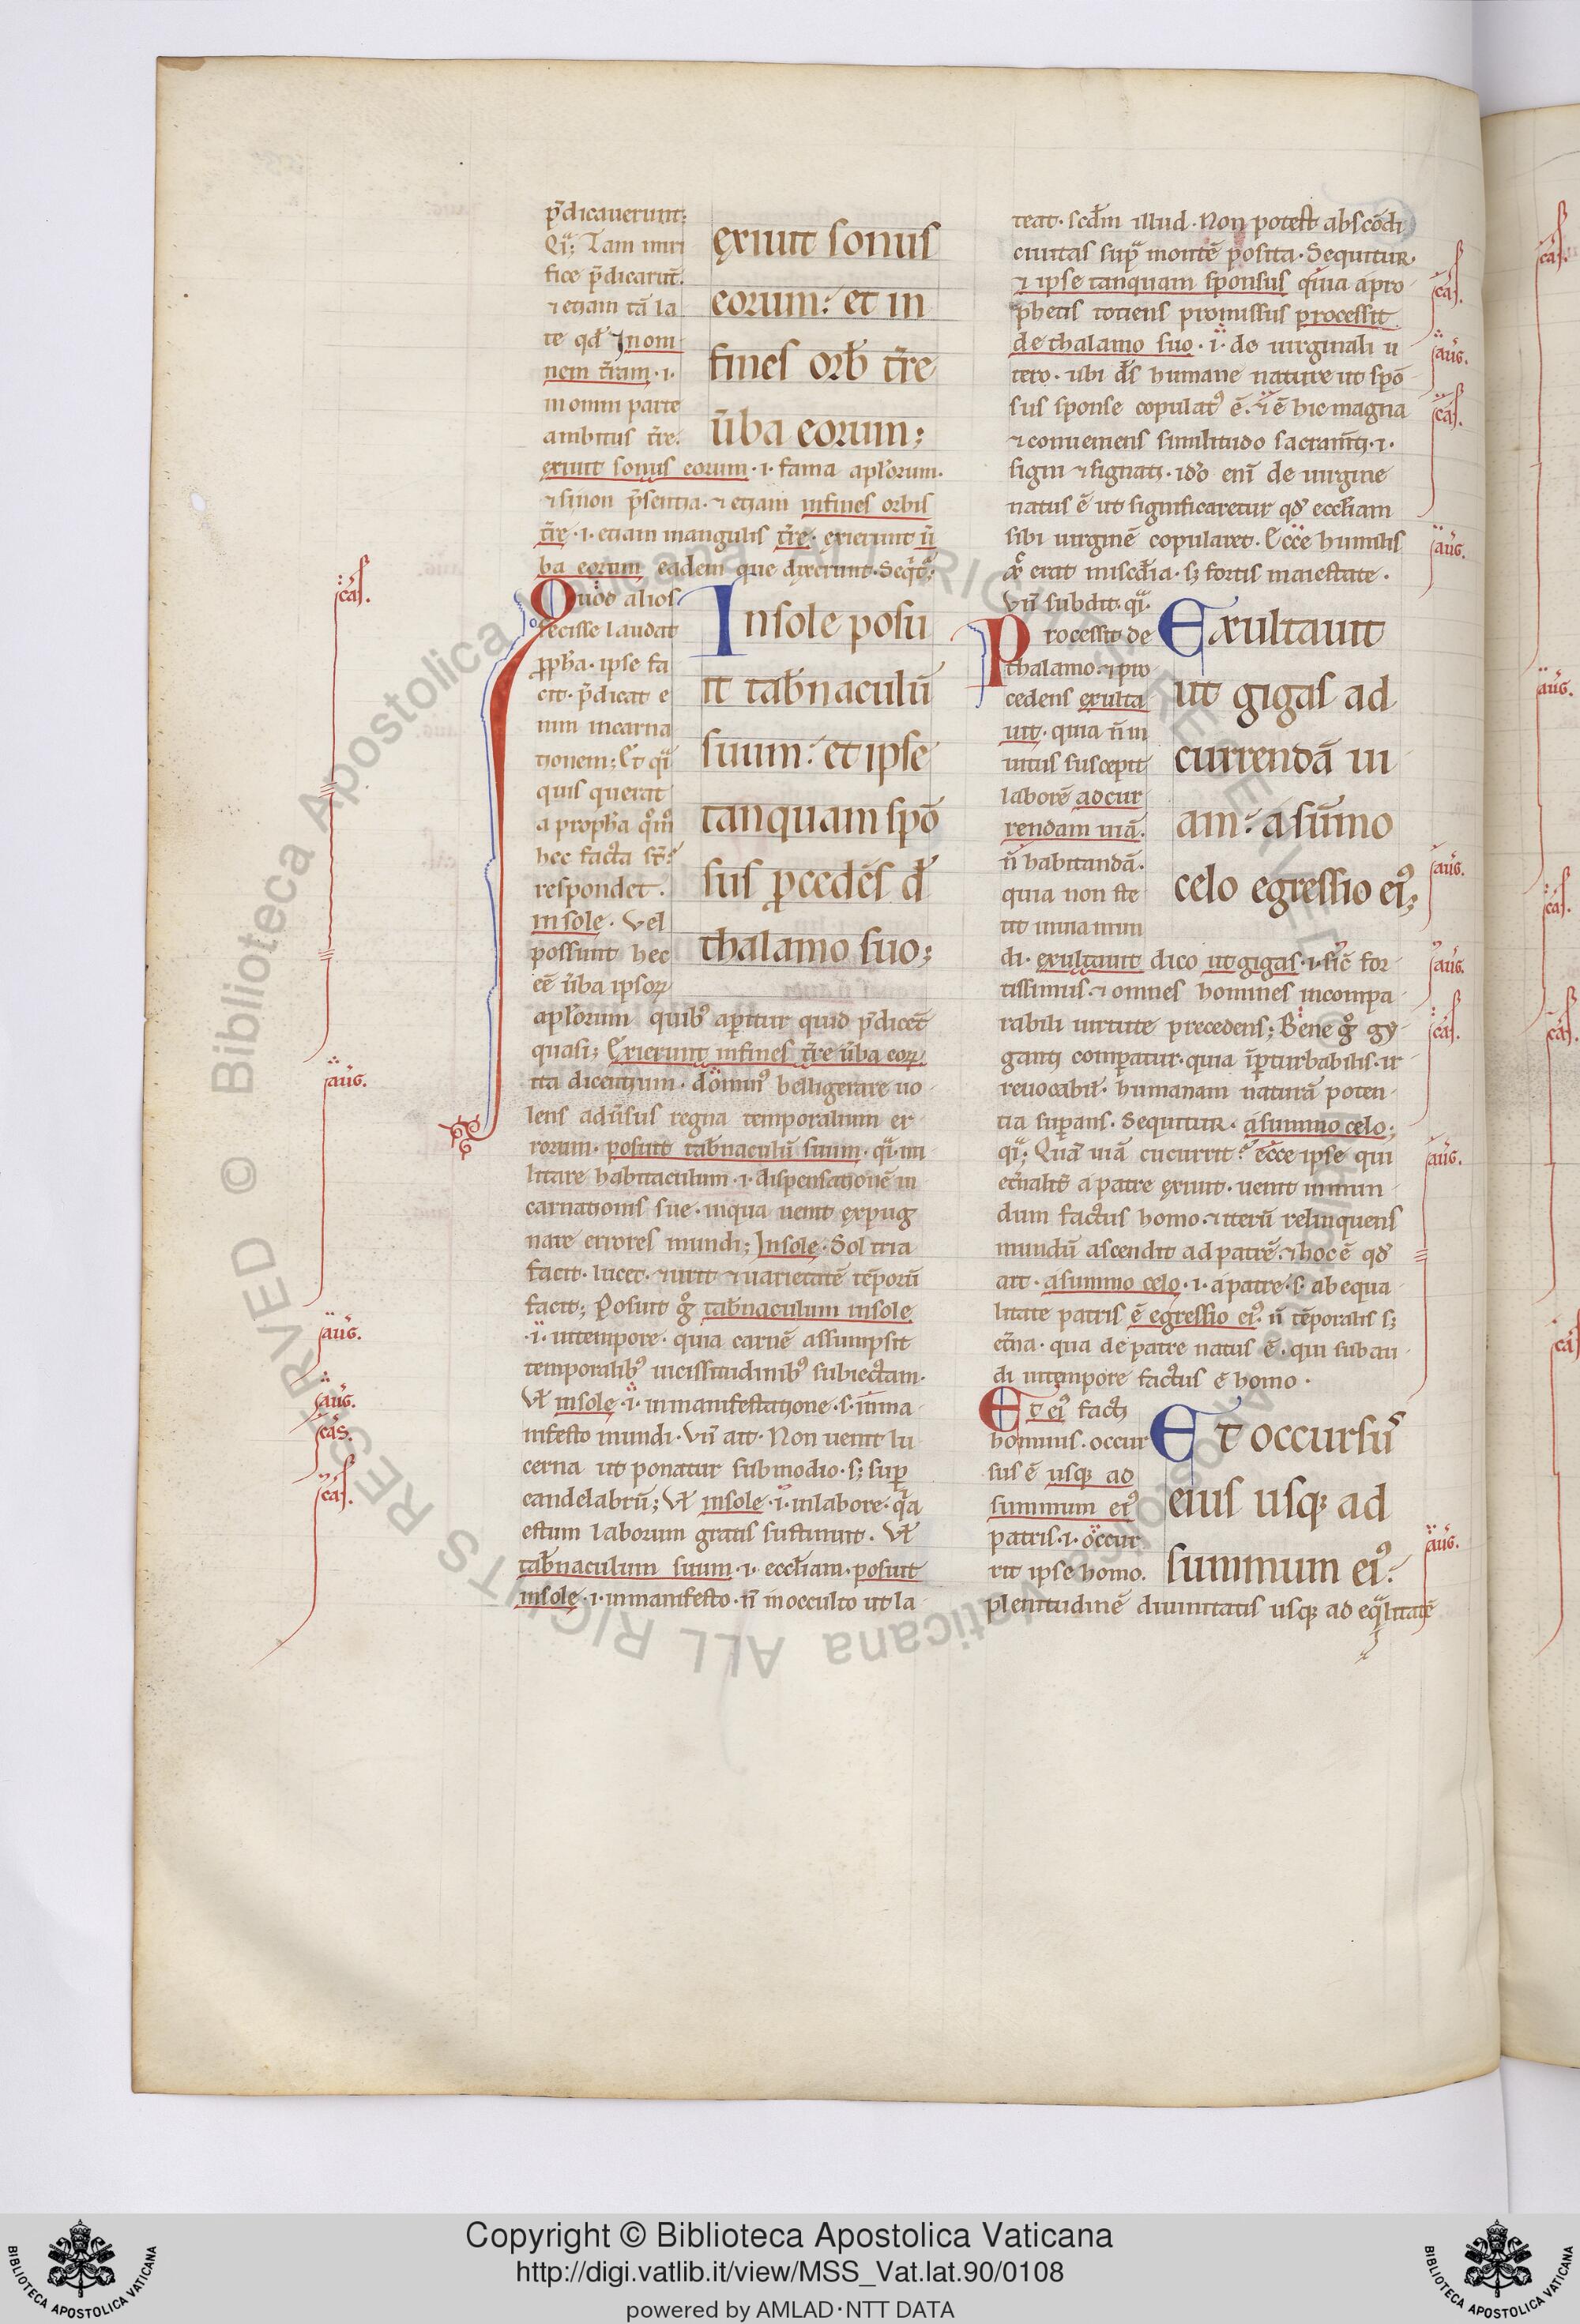 p̄dicauerunt;
Qͣi; Tam miri
fice p̄dicarunt̄.
⁊ etiam tā la
te qd̄ In om
nem t̄ram · i ·
in omni parte
ambitus t̄re.
exiuit sonus
eorum: et in
fines orb̄ t̄re
ūba eorum;
exiuit sonus eorum · i · fama apl̄orum ·
⁊ si non p̄sentia · ⁊ etiam in fines orbis
t̄re · i · etiam in angulis t̄re · exierunt ū
ba eorum eadem que dixerunt · Seqͥtͬ;
Quod alios
fecisse laudat
ꝓph̄a · ipse fa
cit · p̄dicat e
nim incarna
tionem; Et qͣi
quis querat
a proph̄a qͦm̄
hec facta st̄:
respondet .
in sole . Vel
possunt hec
eē ūba ipsoꝝ
In sole posu
it tab̄naculū
suum: et ipse
tanquam spō
sus ꝓcedēs d̄
thalamo suo;
apl̄orum quibꝰ aꝑitur quid p̄dicēt
quasi; Exierunt in fines t̄re ūba eoꝝ.
ita dicentium · domin̄ꝰ belligerare uo
lens adūsus regna temporalium er
rorum · posuit tab̄naculū suum · qͣi · mi
litare habitaculum · i · dispensationē in
carnationis sue · in qua uenit expug
nare errores mundi; In sole · Sol tria
facit · lucet · ⁊ urit ⁊ uarietatē tēporū
facit; Posuit gͦ tab̄naculum in sole
· i · in tempore · quia carnē assumpsit
temporalibꝰ uicissitudinibꝰ subiectam ·
Vł in sole · i · in manifestatione · s · in ma
nifesto mundi · Vn̄ ait · Non uenit lu
cerna ut ponatur sub modio · s; suꝑ
candelabrū; Vł in sole · i · in labore · qͣ
estum laborum gratis sustinuit . Vł
tab̄naculum suum · i · eccl̄iam · posuit
in sole · i · in manifesto · n̄ in occulto ut la
teat · scd̄m illud · Non potest abscōdi
ciuitas supͣ montē posita · Sequitur ·
⁊ ipse tanquam sponsus quia a pro
phetis totiens promissus processit
de thalamo suo · i · de uirginali u
tero · ubi d̄s humane nature ut spō
sus sponse copulatꝰ ē · ⁊ ē hic magna
⁊ conueniens similitudo sacram̄ti · i ·
signi ⁊ signati · ido͛ eni̅ de uirgine
natus ē ut significaretur qd̄ eccl̄iam
sibi uirginē copularet · Ecce humilis
erat miscd̄ia · s; fortis maiestate ·
Vn̄ subdit · qͣi ·
Processit de
thalamo · ⁊ pro
cedens exulta
uit · quia n̄ in
uitus suscepit
laborē ad cur
rendam uiā .
n̄ habitandā ·
quia non ste
tit in uia mun
Exultauit
ut gigas ad
currendā ui
am: a sūmo
celo egressio eiꝰ;
di · exultauit dico ut gigas · i · sic̄ for
tissimus · ⁊ omnes homines incompa
rabili uirtute precedens; Bene gͦ gy
ganti comꝑatur · quia īꝑturbabilis · ir
reuocabil̄ · humanam naturā poten
tia suꝑans · Sequitur · a summo celo ;
qͣi; Quā uiā cucurrit? ecce ipse qui
et̄nalit̄ a patre exiuit · uenit in mun
dum factus homo · ⁊ iterū relinquens
mundū ascendit ad patrē · ⁊ hoc ē qd̄
ait · a summo celo · i · a patre · s · ab equa
litate patris ē egressio eiꝰ · n̄ tēporalis s;
et̄na · qua de patre natus ē · qui sub au
di in tempore factus ē homo ·
Et eiꝰ facti
hominis · occur
sus ē usqꝫ ad
summum eiꝰ
patris · i · occur
rit ipse homo .
Et occursꝰ
eius usqꝫ ad
summum eiꝰ:
plenitudinē diuinitatis usqꝫ ad eqͣlitatē
cas̄.
auḡ.
auḡ.
auḡ.
cas̄.
cas̄.
cas̄.
auḡ.
cas̄.
auḡ.
auḡ.
auḡ.
cas̄.
auḡ.
auḡ.
cas̄.
auḡ.
cas̄.
cas̄.
cas̄.
© Biblioteca Apostolica Vaticana ALL RIGHTS RESERVED
© Biblioteca Apostolica Vaticana ALL RIGHTS RESERVED
Copyright © Biblioteca Apostolica Vaticana
http://digi.vatlib.it/view/MSS_Vat.lat.90/0108
powered by AMLAD·NTT DATA
BIBLIOTECA APOSTOLICA VATICANA
BIBLIOTECA APOSTOLICA VATICANA